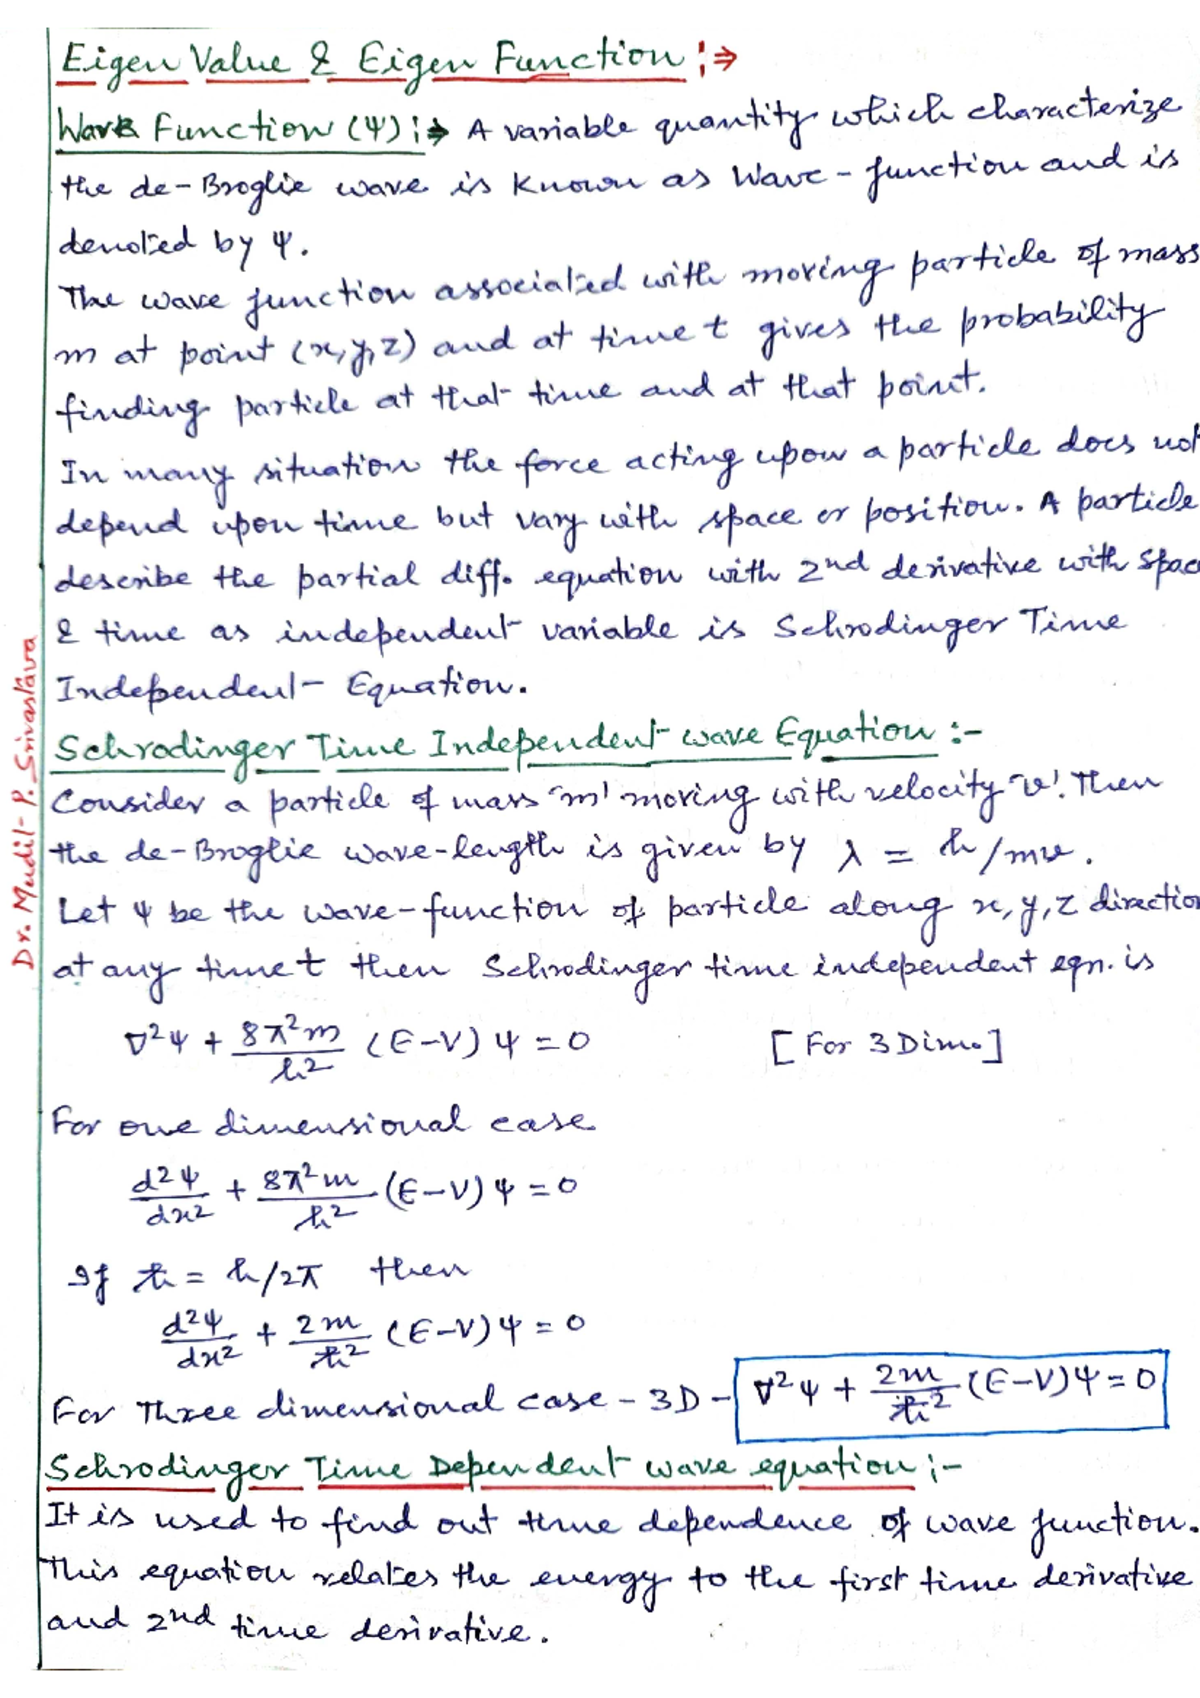 Eigen Value & Eigen Function :⇒
Wave Function (Ψ) :⇒ A variable quantity which characterize
the de-Broglie wave is Known as Wave-function and is
denoted by Ψ.
The wave function associated with moving particle of mass
m at point (x,y,z) and at time t gives the probability
finding particle at that time and at that point.
In many situation the force acting upon a particle does not
depend upon time but vary with space or position. A particle
describe the partial diff. equation with 2nd derivative with spac
& time as independent variable is Schrodinger Time
Independent Equation.
Schrodinger Time Independent wave Equation :-
Consider a particle of mass 'm' moving with velocity 'v'. Then
the de-Broglie wave-length is given by λ = h/mv.
Let Ψ be the wave-function of particle along x,y,z direction
at any time t then Schrodinger time independent eqn. is
∇²Ψ + 8π²m/h² (E-V) Ψ = 0 [For 3 Dim.]
For one dimensional case
d²Ψ/dx² + 8π²m/h² (E-V) Ψ = 0
If ħ = h/2π then
d²Ψ/dx² + 2m/ħ² (E-V) Ψ = 0
For Three dimensional case - 3D - ∇²Ψ + 2m/ħ² (E-V)Ψ = 0
Schrodinger Time Dependent wave equation :-
It is used to find out time dependence of wave function.
This equation relates the energy to the first time derivative
and 2nd time derivative.
Dr. Mudit P. Srivastava